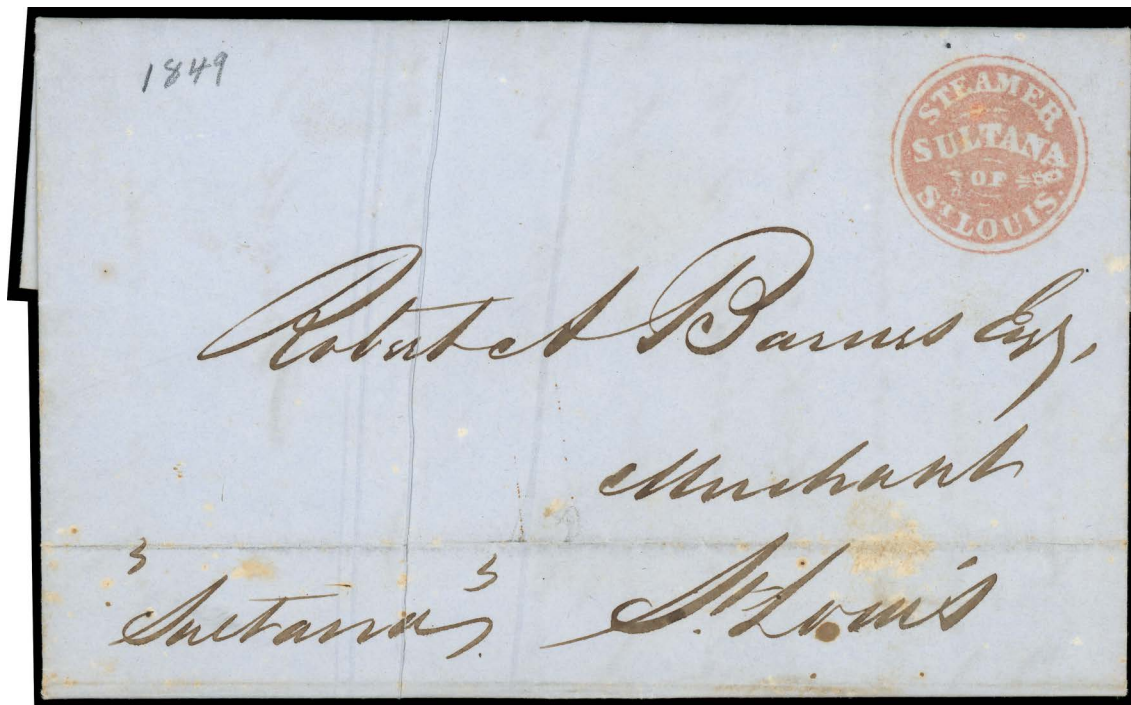 1849
STEAMER
SULTANA
OF
St LOUIS.
Robert A Barnes Esq,
Merchant
St Louis
"Sultana".